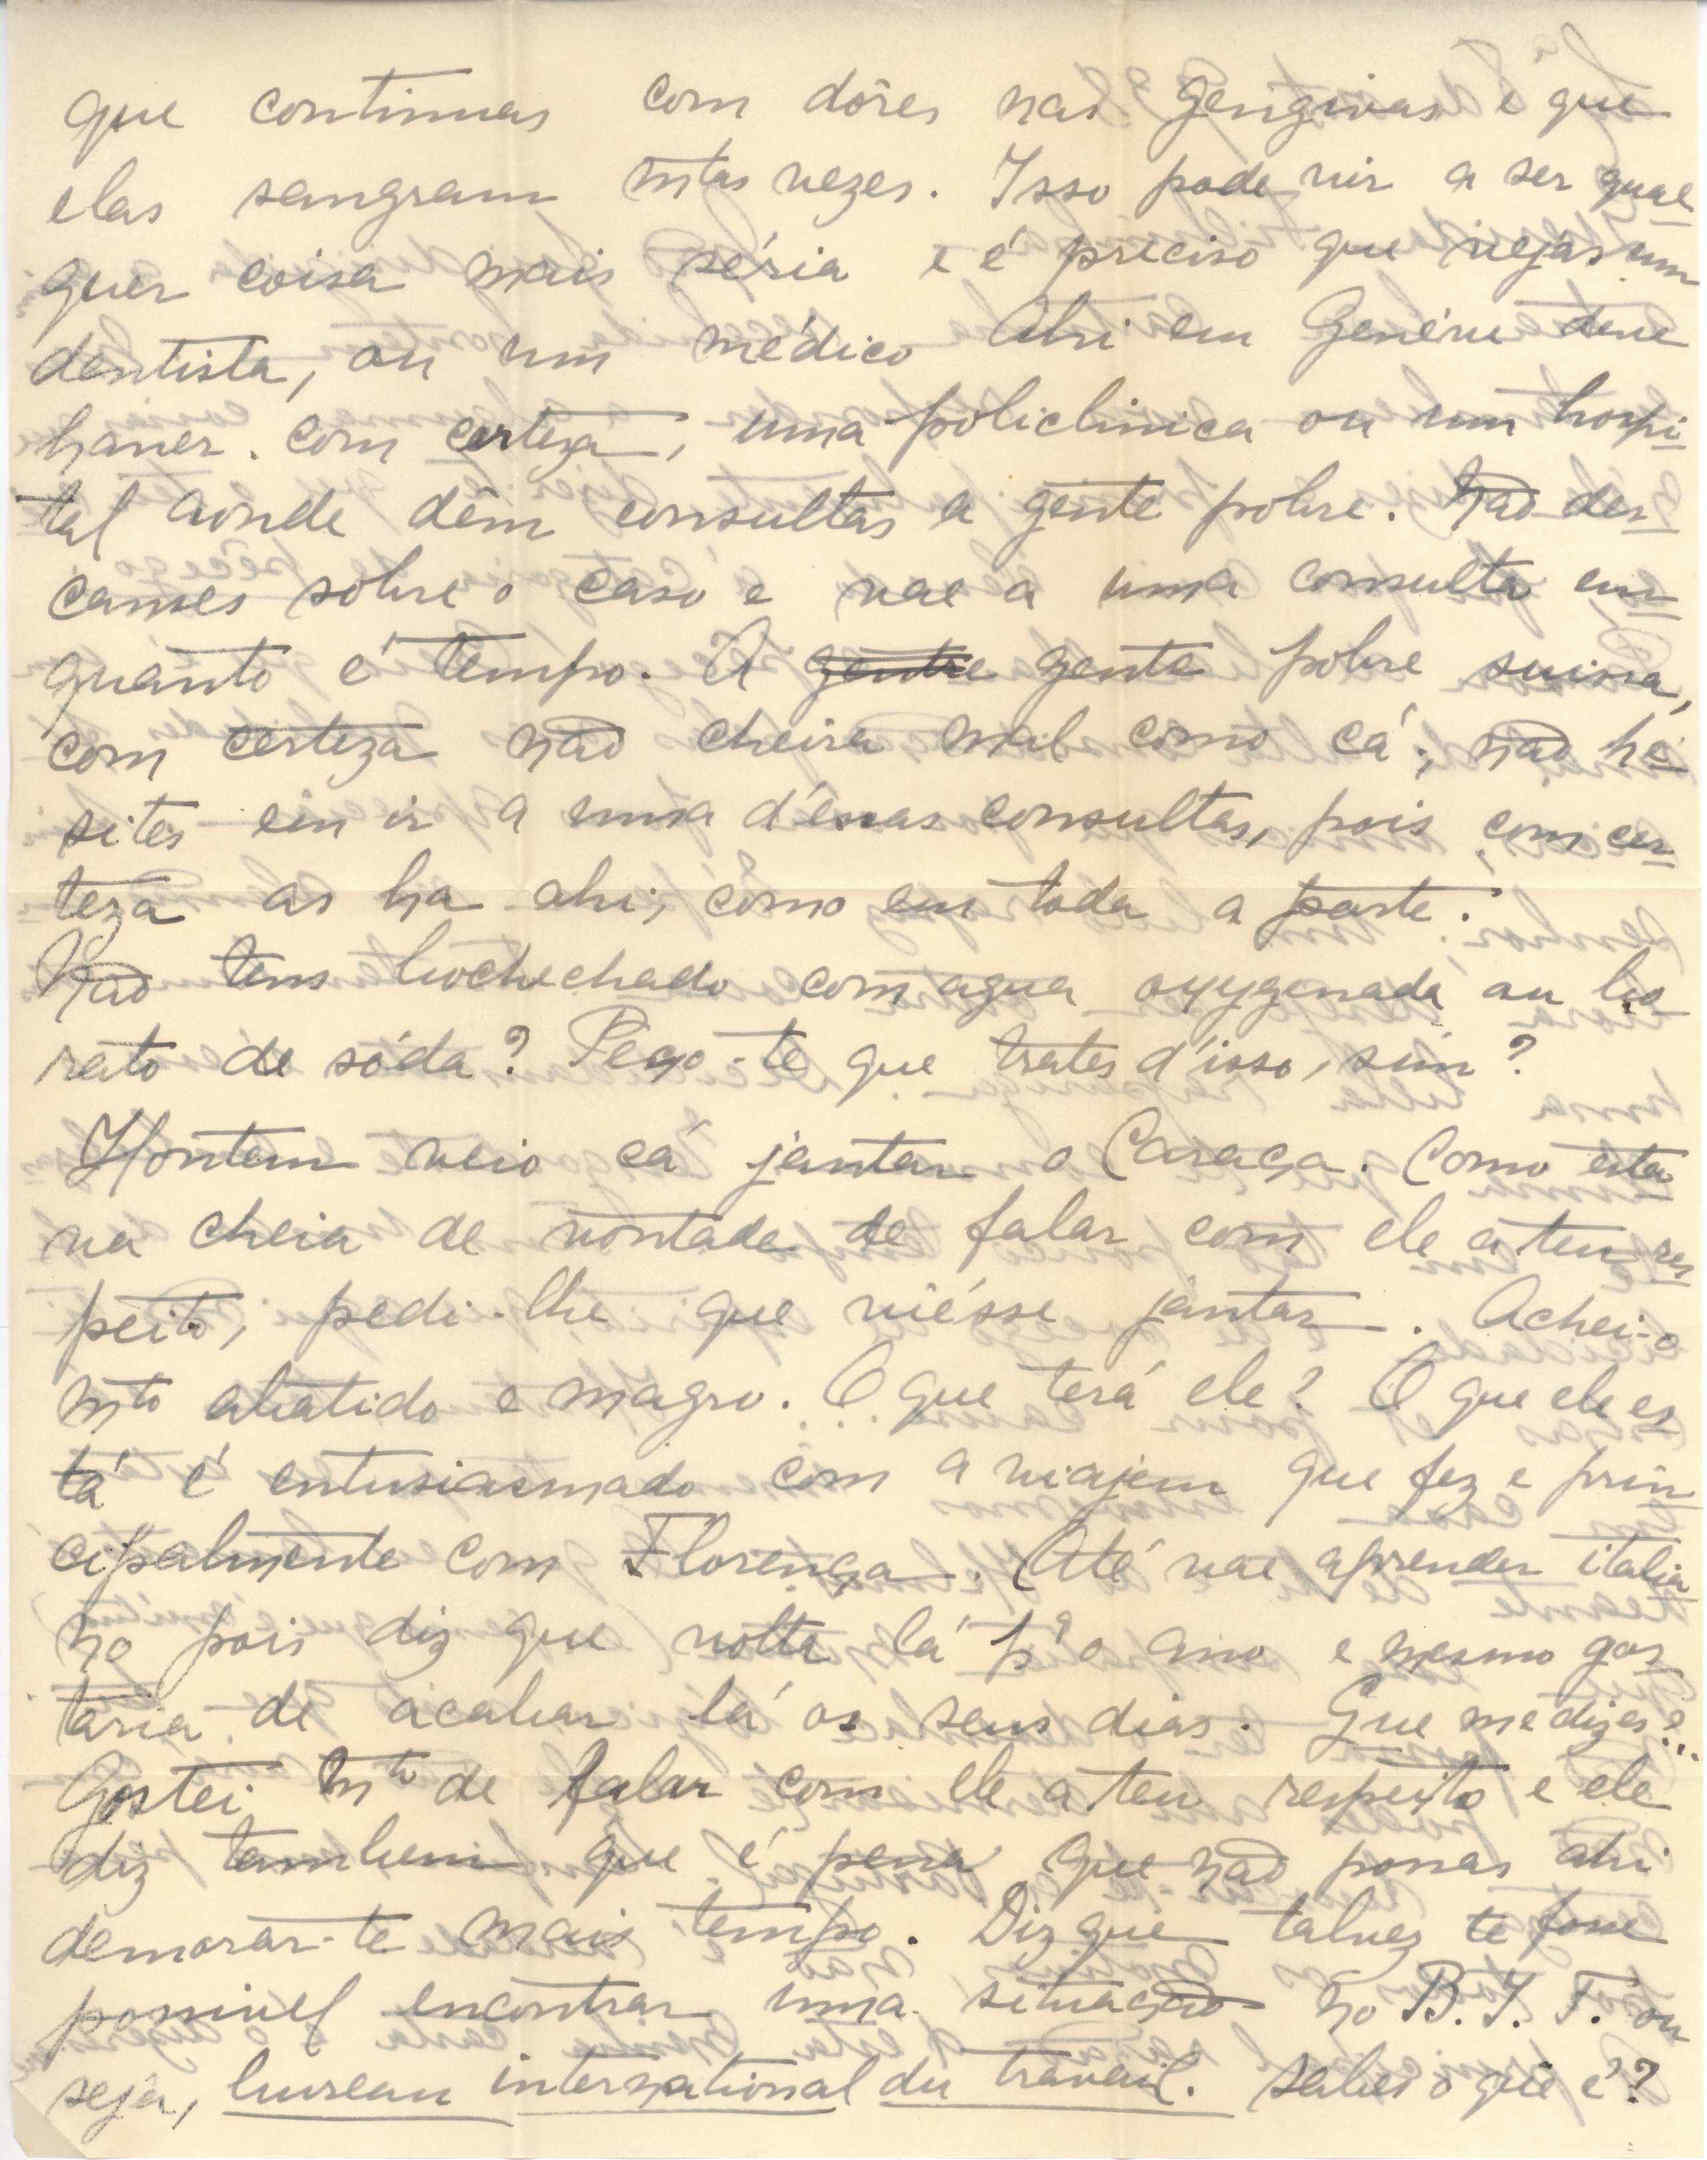 que continuas com dôres nas gengivas e que
elas sangram mtas vezes. Isso pode vir a ser qual-
quer coisa mais séria e é preciso que vejas um
dentista, ou um médico Ahi em Genéve deve
haver. com certeza, uma policlinica ou um hospi-
tal aonde dêm consultas a gente pobre. Não des-
canses sobre o caso e vae a uma consulta em-
quanto é tempo. A gente gente pobre suissa,
com certeza não cheira mal como cá; não hé-
sites em ir a uma d'essas consultas, pois com cer-
teza as ha ahi, como em toda a parte.
Não tens bochechado com agua oxygenada ou bo
rato de sóda? Peço-te que trates d'isso, sim?
Hontem veio cá jantar o Caraça. Como esta-
va cheia de vontade de falar com ele a teu res-
peito, pedi-lhe que viésse jantar. Achei-o
mto abatido e magro. O que terá ele? O que ele es
tá é entusiasmado com a viajem que fez e prin-
cipalmente com Florença. Até vae aprender italia-
no pois diz que volta lá pª o ano e mesmo gos
taria de acabar lá os seus dias. Que me dizes?...
Gostei mto de falar com ele a teu respeito e ele
diz tambem que é pena que não possas ahi
demorar-te mais tempo. Diz que talvez te fosse
possivel encontrar uma situação no B. I. T. ou
seja, bureau international du travail. Sabes o que é?